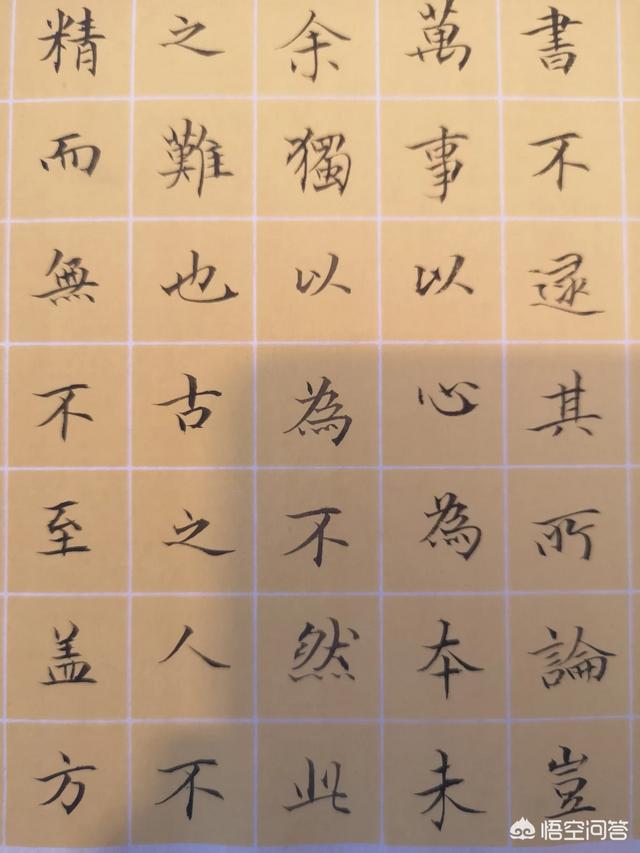 書不逮其所論豈
萬事以心為本未
余獨以為不然此
之難也古之人不
精而無不至盖方
悟空问答